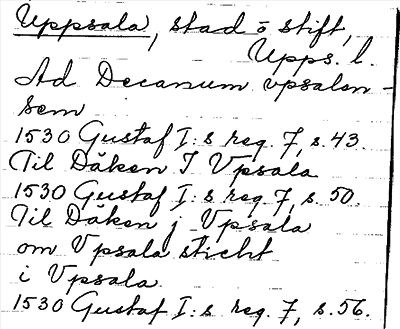 Uppsala, stad o stift,
Upps. l.
Ad Decanum vpsalen-
sem
1530 Gustaf I:s reg. 7, s. 43.
Til Dåken I Vpsala
1530 Gustaf I:s reg. 7, s. 50.
Til Daken j Vpsala
om Vpsala sticht
i Vpsala
1530 Gustaf I:s reg. 7, s. 56.